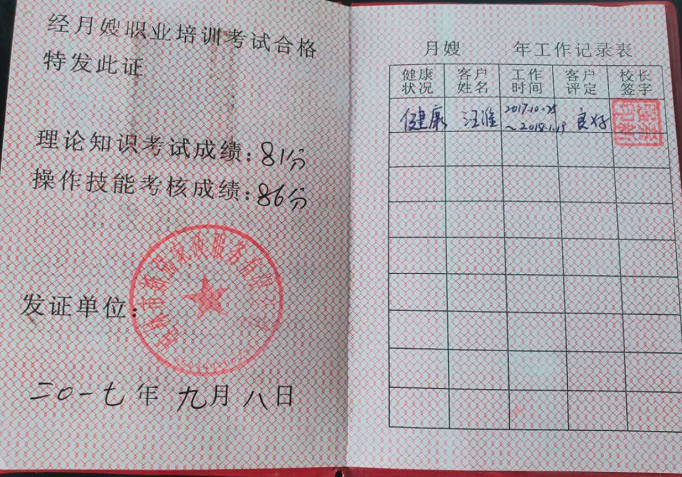 经月嫂职业培训考试合格
特发此证
理论知识考试成绩：81分
操作技能考核成绩：86分
发证单位：
二〇一七年九月八日
月嫂 年工作记录表
健康状况 客户姓名 工作时间 客户评定 校长签字
健康 汪淮 2017.10.25～2018.1.19 良好